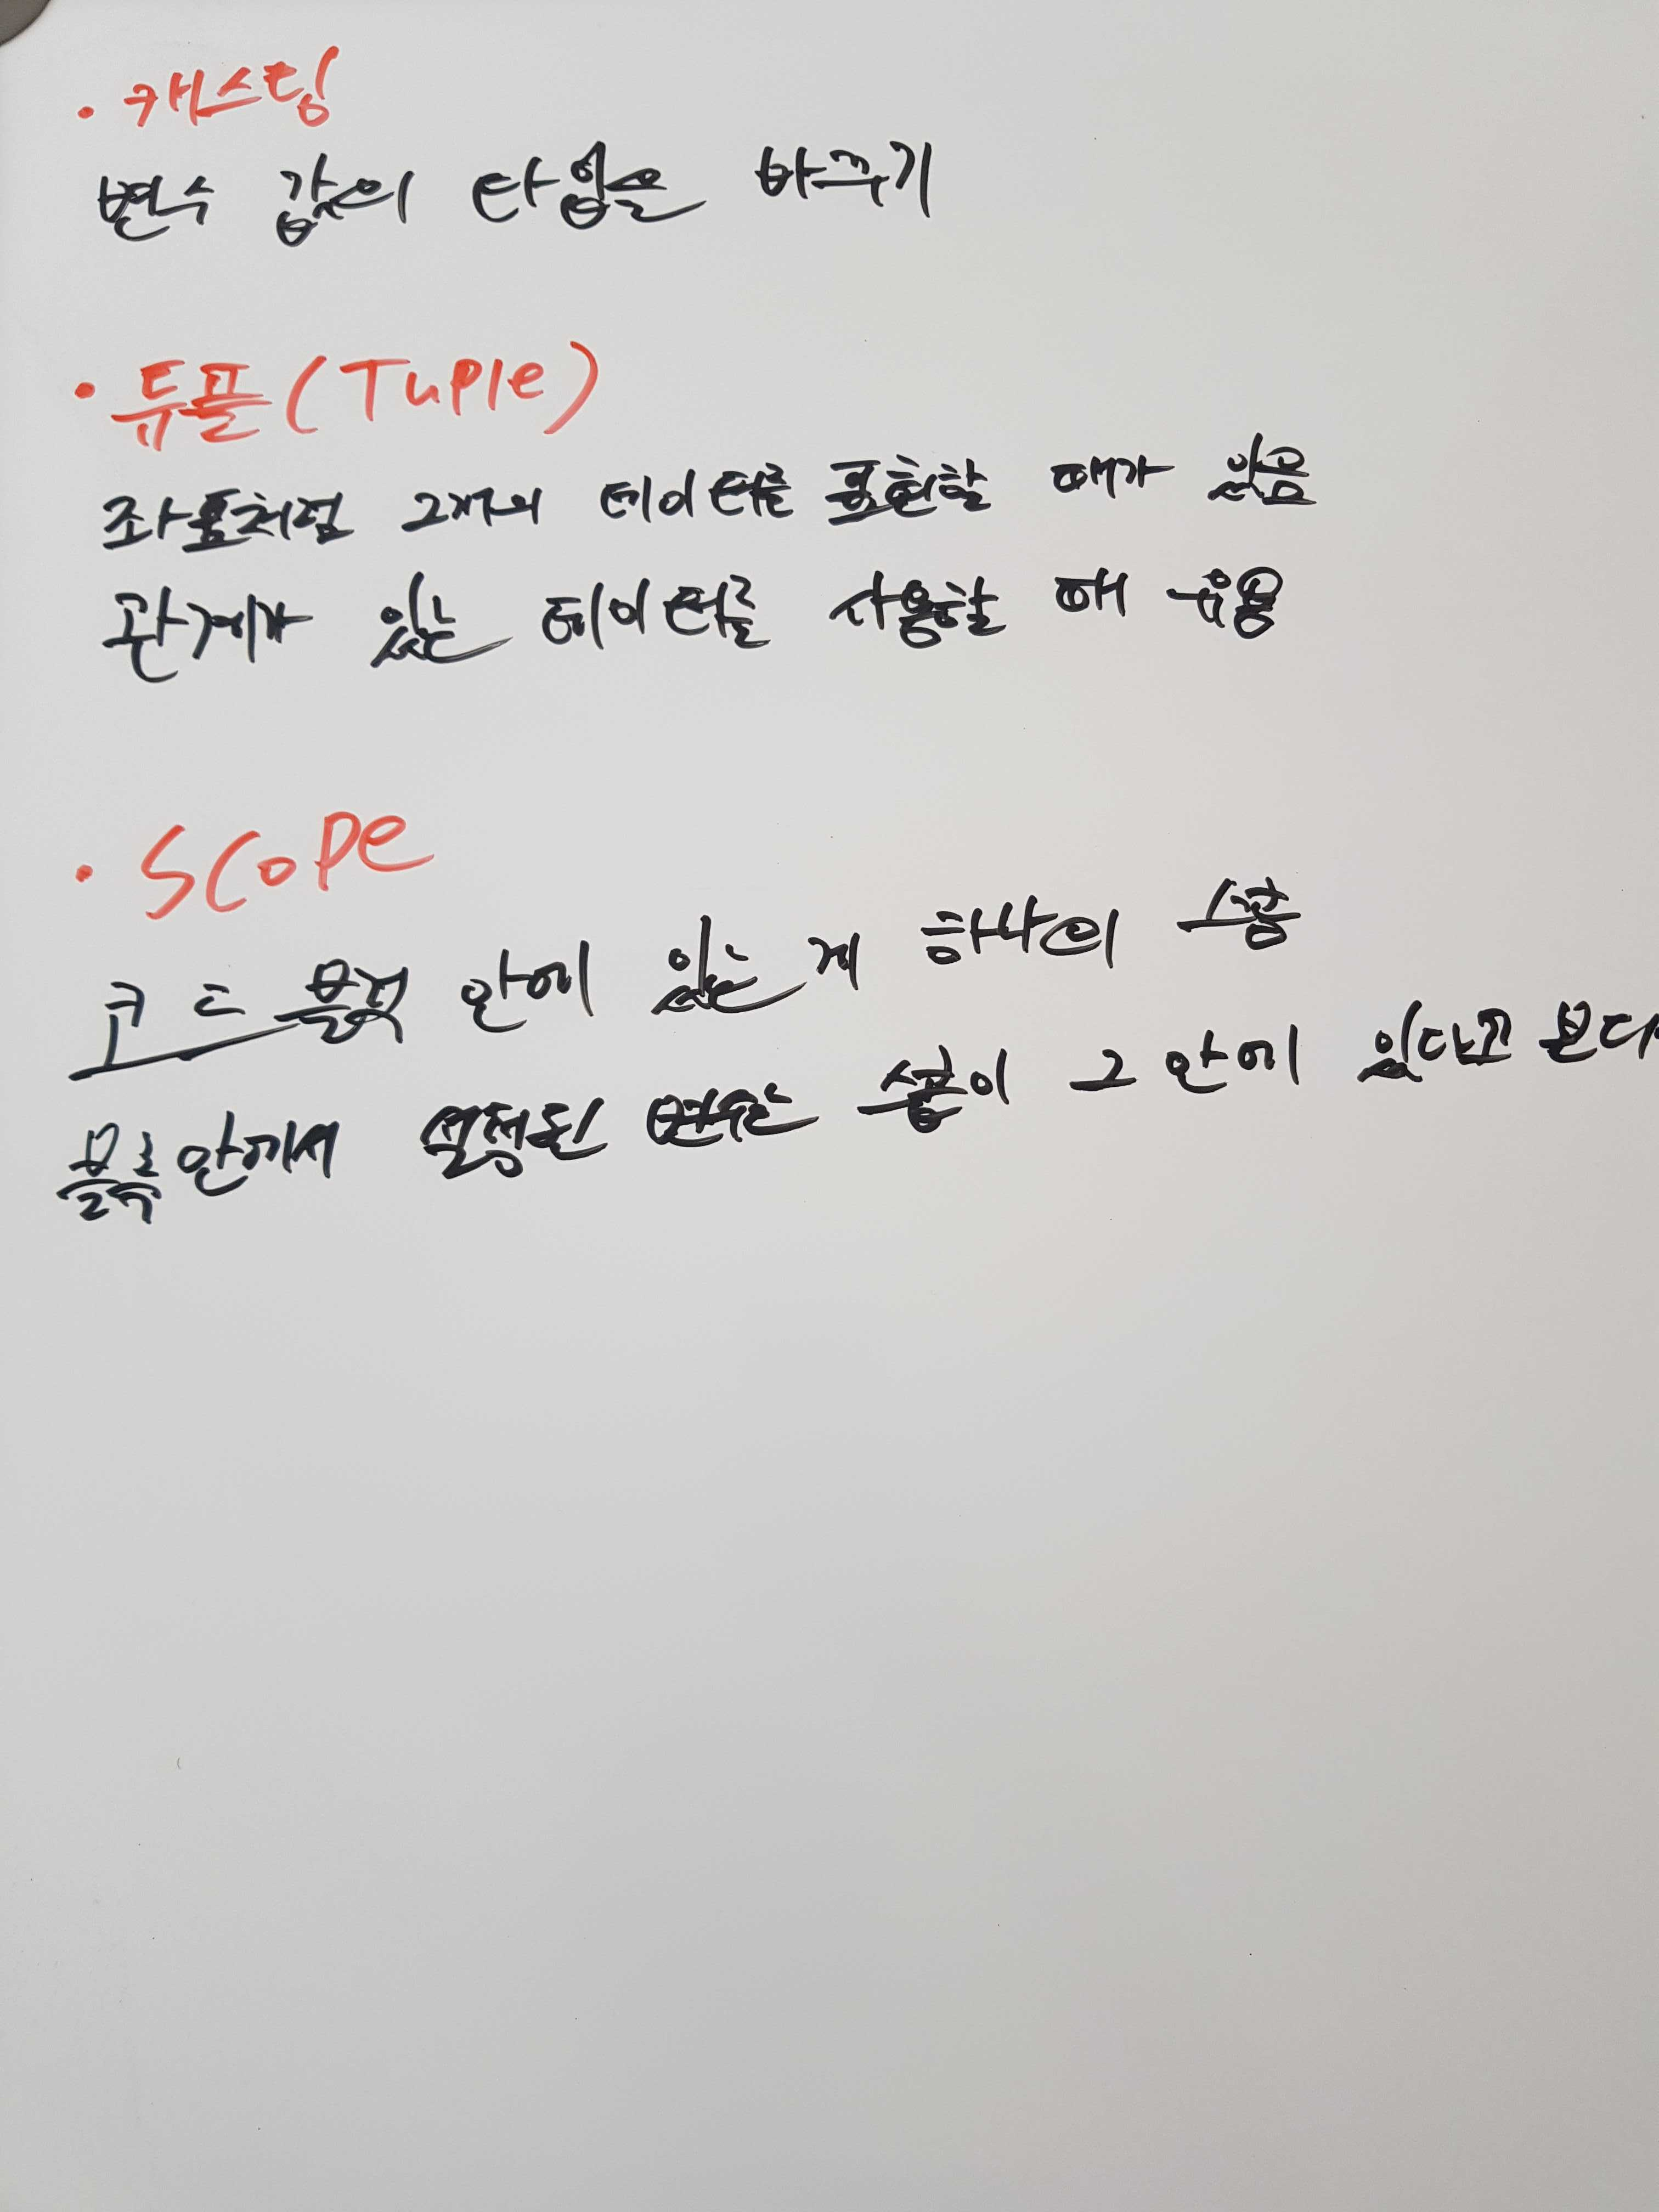 · 캐스팅
변수 값의 타입을 바꾸기
· 튜플(Tuple)
좌표처럼 2개의 데이터를 표현할 때가 있음
관계가 있는 데이터를 사용할 때 유용
· Scope
코드 블럭 안에 있는 게 하나의 스콥
블록 안에서 설정된 변수는 스콥이 그 안에 있다고 본다